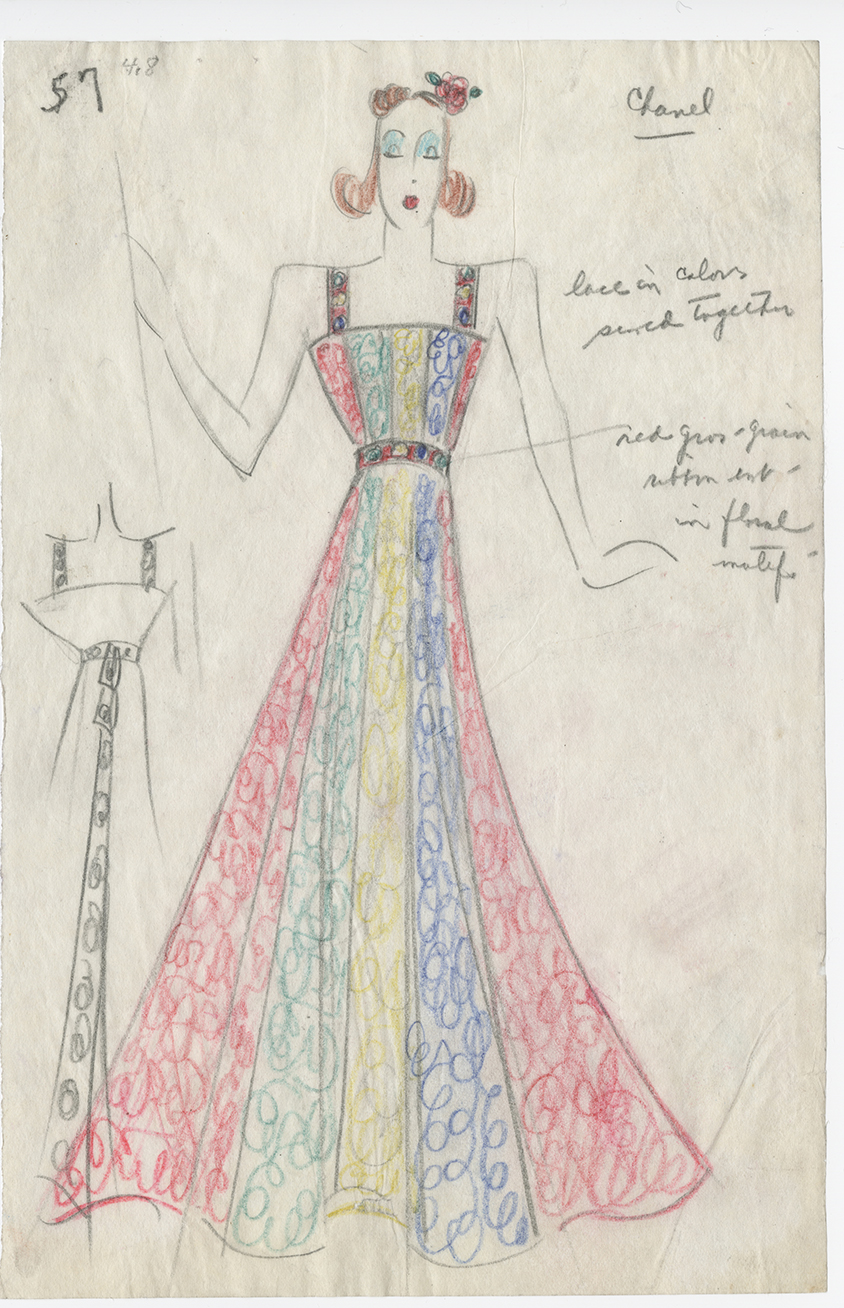 57
48
Chanel
lace in colors
sewed together
red gros-grain
ribbon cut-
in floral
motif.